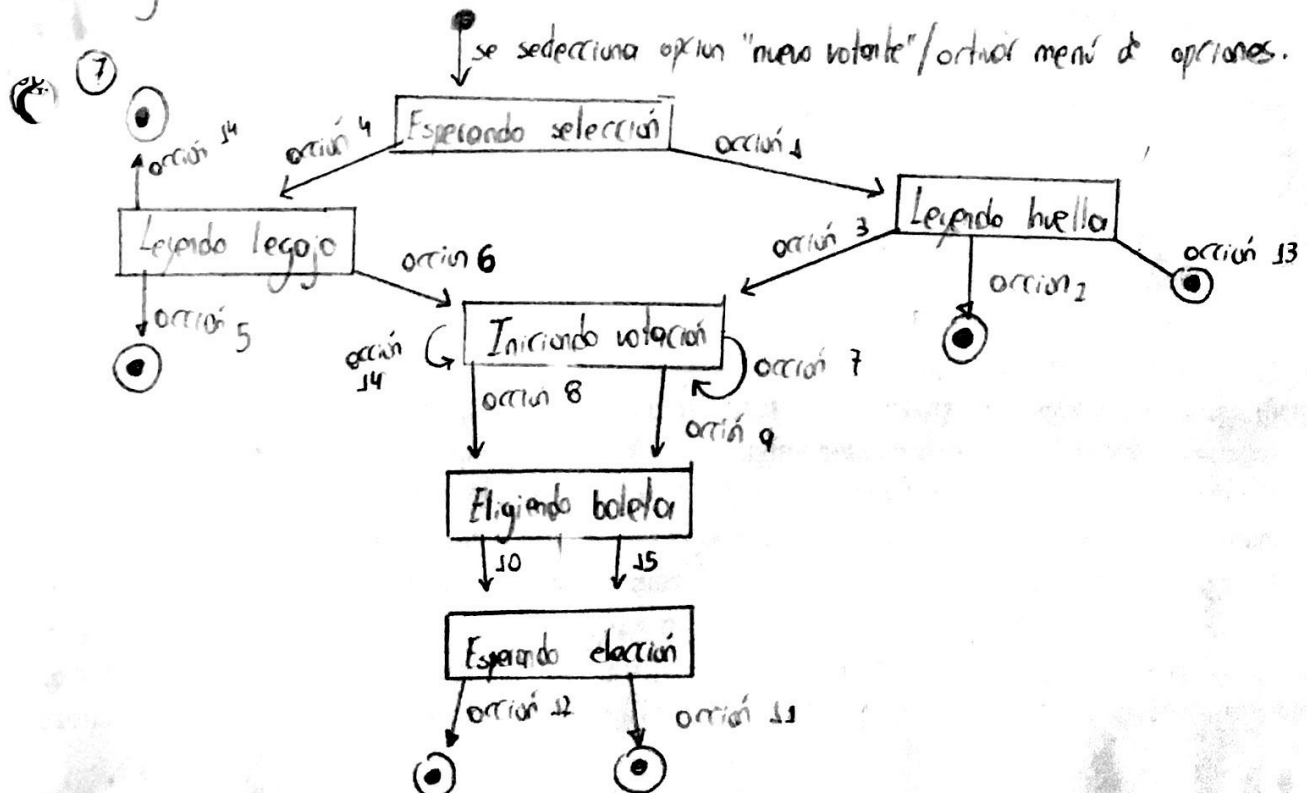 se sedecciona opcion "nuevo votante"/activar menú de opciones.
7
Esperando selección
acción 14
acción 4
acción 1
Leyendo legajo
Leyendo huella
acción 6
acción 3
acción 13
acción 5
acción 2
Iniciando votación
acción 14
acción 7
acción 8
acción 9
Eligiendo boleta
10
15
Esperando elección
acción 12
acción 11